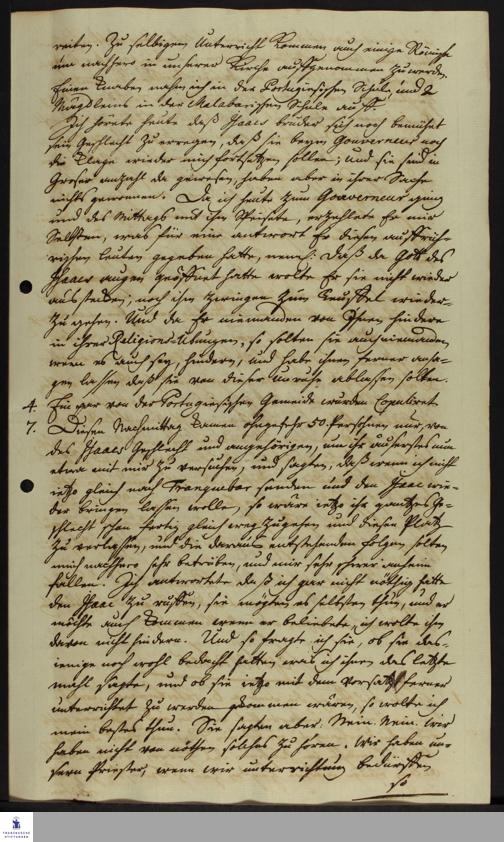 reiten. Zu selbigem Unterricht kommen auch einige Römische
um nachhero in unserer Kirche auffgenommen zu werden.
Einen Knaben nahm ich in der Portugiesischen Schule, und 2
Mägdlens in der Malabarischen Schule auff.
Ich hörete heute daß Isaacs brüder sich noch bemühet
sein Geschlecht zu erregen, daß sie beym Gouverneur noch
die Klage wieder mich fortsetzen sollen; und sie sind in
Groser anzahl da gewesen, haben aber in ihrer Sache
nichts gewonnen. Da ich heute zum Gouverneur ging
und des Mittags mit ihm Speisete, erzehlete Er mir
Selbsten, was für eine antwort Er diesen auffrüh-
rischen leuten gegeben hatte, neml: Daß da Gott des
Isaacs augen geöffnet hatte wolte Er sie nicht wieder
aus stechen, noch ihn zwingen zum Teuffel wieder-
zu gehen. Und da Er niemanden von Ihnen hindere
in ihrer Religions Übungen, so solten sie auch niemanden
wenn es auch sey, hindern, und habe ihnen ferner ansa-
gen lassen daß sie von dieser unruhe ablassen solten.
4. Ein par von der Portugiesischen Gemeide wurden Copuliret
7. Diesen Nachmittag kamen ohngefehr 50 Persohnen nur, von
des Isaacs Geschlecht und angehörigen, um ihr äuserstes nun
etwa mit mir zu versuchen, und sagten, daß wenn ich nicht
ietzo gleich nach Tranquebar senden und den Isaac wie-
der bringen lassen wolle, so wäre ietzo ihr gantzes Ge-
schlecht schon fertig gleich weg zugehen und diesen Platz
zu verlassen, und die daraus entstehenden folgen solten
mich nachhero sehr betrüben, und mir sehr schwer anheim
fallen. Ich antwortete daß ich gar nicht nöthig hätte
den Isaac zu ruffen, sie mögten es selbsten thun, und er
möchte auch kommen wenn er beliebete, ich wolte ihn
davon nicht hindern. Und so fragte ich sie, ob sie das-
ienige noch wohl bedacht hätten was ich ihnen das letzte
mahl sagte, und ob sie ietzo mit dem Vorsatz ferner
unterrichtet zu werden gekommen wären, so wolte ich
mein bestes thun. Sie sagten aber. Nein. Nein. wir
haben nicht von nöthen solches zu hören. Wir haben un-
sern Priester, wenn wir unterrichtung bedürffen
so
FRANCKESCHE
STIFTUNGEN